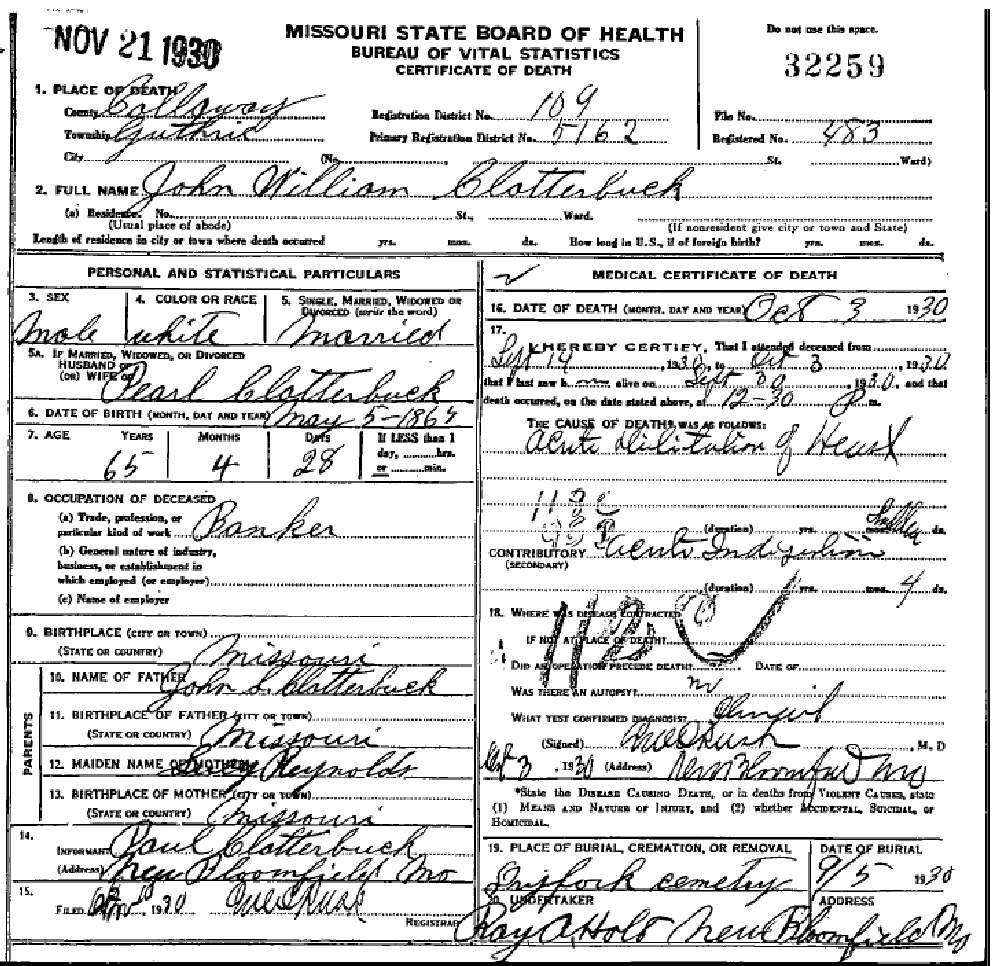 NOV 21 1930
MISSOURI STATE BOARD OF HEALTH
BUREAU OF VITAL STATISTICS
CERTIFICATE OF DEATH
Do not use this space.
32259
1. PLACE OF DEATH
County Callaway Registration District No. 109 File No.
Township Guthrie Primary Registration District No. 5162 Registered No. 483
City (No. St. Ward)
2. FULL NAME John William Clatterbuck
(a) Residence. No. St., Ward.
(Usual place of abode) (If nonresident give city or town and State)
Length of residence in city or town where death occurred yrs. mos. ds. How long in U.S., if of foreign birth? yrs. mos. ds.
PERSONAL AND STATISTICAL PARTICULARS
3. SEX 4. COLOR OR RACE 5. SINGLE, MARRIED, WIDOWED OR
DIVORCED (write the word)
Male white Married
5A. IF MARRIED, WIDOWED, OR DIVORCED
HUSBAND OF
(OR) WIFE OF Pearl Clatterbuck
6. DATE OF BIRTH (MONTH, DAY AND YEAR) May 5-1865
7. AGE YEARS MONTHS DAYS If LESS than 1
day, hrs.
65 4 28 or min.
8. OCCUPATION OF DECEASED
(a) Trade, profession, or
particular kind of work Banker
(b) General nature of industry,
business, or establishment in
which employed (or employer)
(c) Name of employer
9. BIRTHPLACE (CITY OR TOWN)
(STATE OR COUNTRY) Missouri
PARENTS
10. NAME OF FATHER John S. Clatterbuck
11. BIRTHPLACE OF FATHER (CITY OR TOWN)
(STATE OR COUNTRY) Missouri
12. MAIDEN NAME OF MOTHER Reynolds
13. BIRTHPLACE OF MOTHER (CITY OR TOWN)
(STATE OR COUNTRY) Missouri
14.
INFORMANT Paul Clatterbuck
(Address) New Bloomfield Mo
15.
FILED 1930
REGISTRAR
MEDICAL CERTIFICATE OF DEATH
16. DATE OF DEATH (MONTH, DAY AND YEAR) Oct 3 1930
17.
I HEREBY CERTIFY, That I attended deceased from
Sept 14, 1930, to Oct 3, 1930
that I last saw h alive on Sept 30, 1930, and that
death occurred, on the date stated above, at 12-30 P m.
THE CAUSE OF DEATH* WAS AS FOLLOWS:
Acute Dilitation of Heart
(duration) yrs. mos. ds.
CONTRIBUTORY Acute Indigestion
(SECONDARY)
(duration) yrs. mos. 4 ds.
18. WHERE WAS DISEASE CONTRACTED
IF NOT AT PLACE OF DEATH?
DID AN OPERATION PRECEDE DEATH? DATE OF
WAS THERE AN AUTOPSY? no
WHAT TEST CONFIRMED DIAGNOSIS?
(Signed) Rush, M. D
Oct 3, 1930 (Address) New Bloomfield Mo
*State the DISEASE CAUSING DEATH, or in deaths from VIOLENT CAUSES, state
(1) MEANS AND NATURE OF INJURY, and (2) whether ACCIDENTAL, SUICIDAL, or
HOMICIDAL.
19. PLACE OF BURIAL, CREMATION, OR REMOVAL DATE OF BURIAL
cemetery 9/5 1930
20. UNDERTAKER ADDRESS
Ray A, Holt New Bloomfield Mo